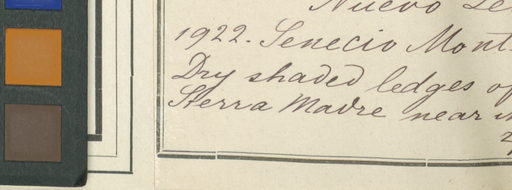 Nuevo Le
1922. Senecio Mont
Dry shaded ledges of
Sierra Madre near